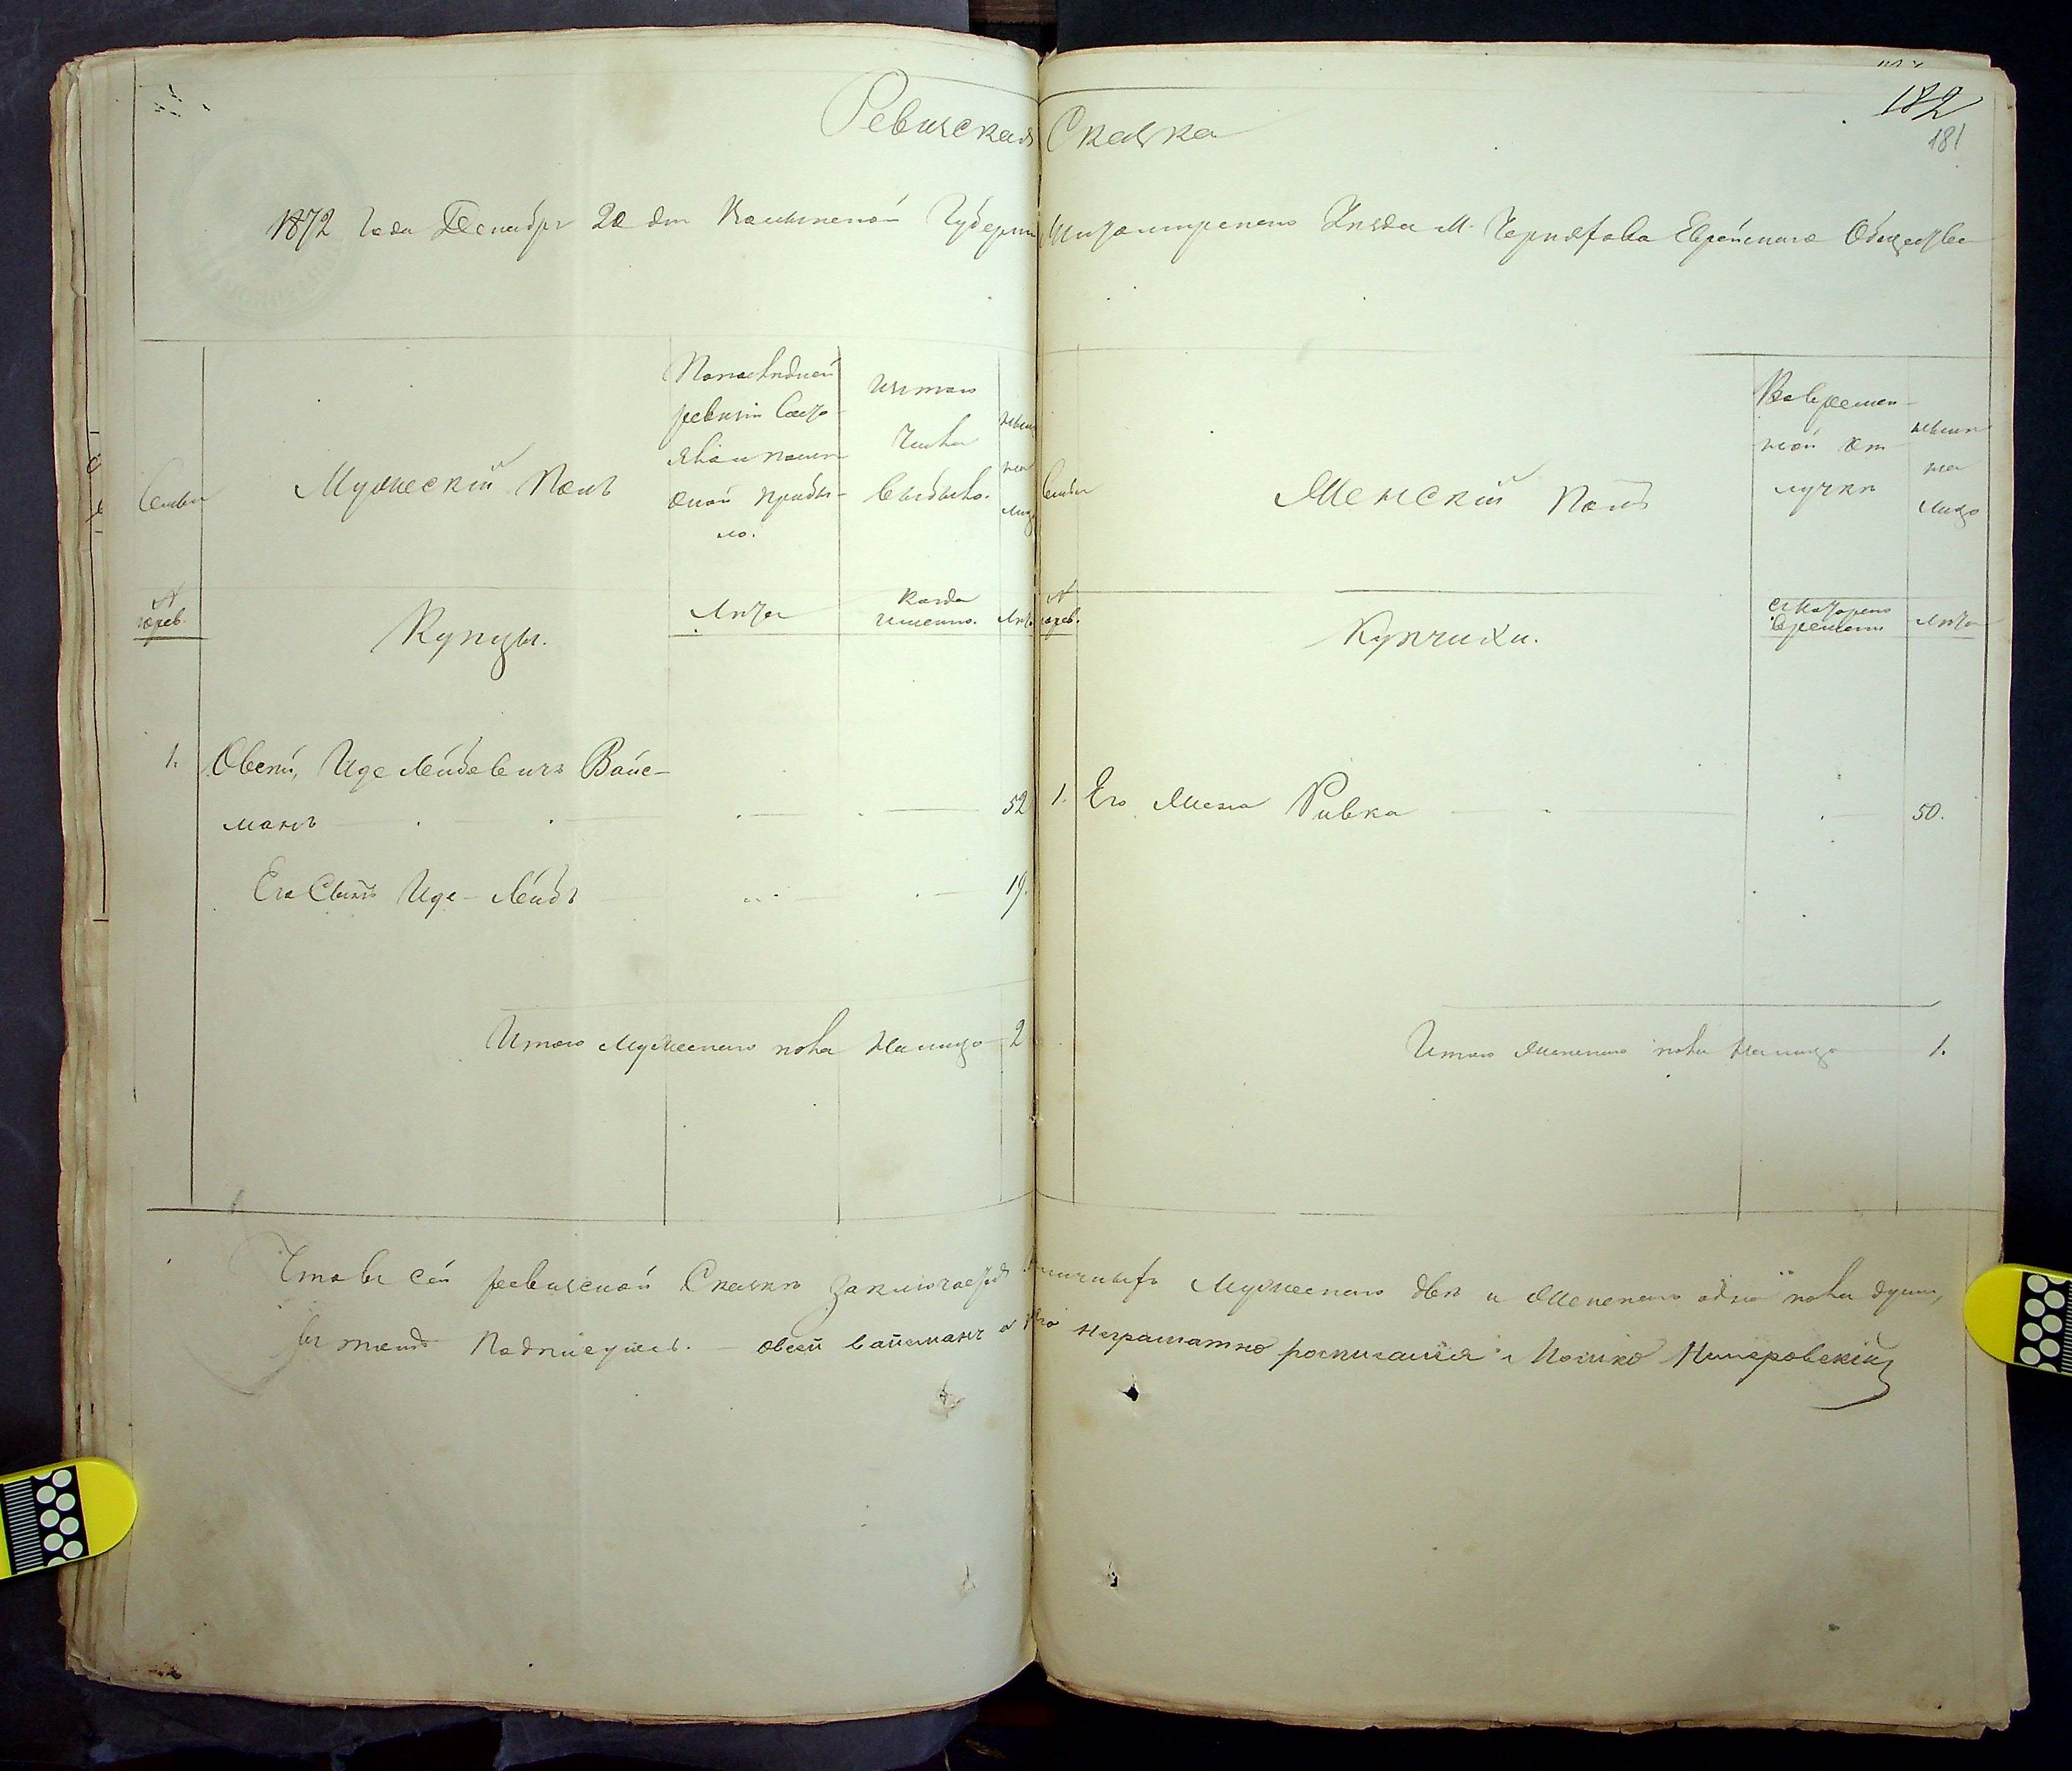 Ревизская Сказка
182
181
1872 года Декабря 20 дня Волынской Губернии Житомирского Уезда М. Черняхова Еврейского Общества
Семьи
Мужеский Полъ
По последней ревизии состояло и после оной прибыло.
Изъ того числа выбыло.
Ныне на лицо
Семьи
Женский Полъ
Во временной отлучке
Ныне на лицо
№ ерев.
Купцы.
Лета
Когда именно.
Лета
№ ерев.
Купчихи.
Съ котораго времени
Лета
1. Овсей, Ицо Лейбевичъ Вайс-
манъ 52
1. Его Жена Ривка 50.
Его Сынъ Ицо-Лейбъ 19.
Итого мужескаго пола на лицо 2
Итого женскаго пола на лицо 1.
Что въ сей ревизской Сказке заключается наличныхъ Мужескаго две и Женскаго одна пола души,
въ томъ Подписуюсь. — овсей вайсманъ а за его неграматно росписался Мошко